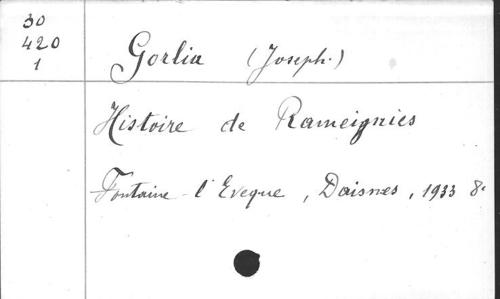 30
420
1
Gorlia (Joseph.)
Histoire de Rameignies
Fontaine-l'Eveque, Daisnes, 1933 8°